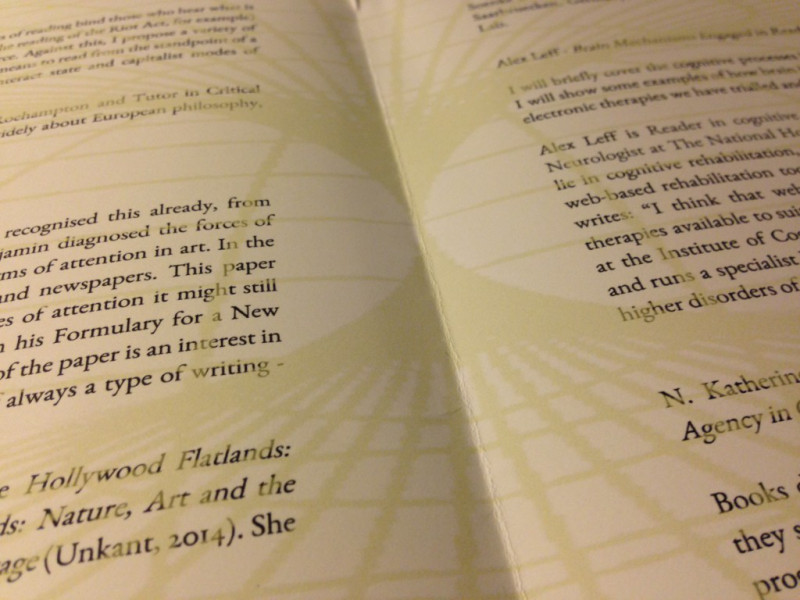 of reading bind those who hear what is
the reading of the Riot Act, for example)
Against this, I propose a variety of
means to read from the standpoint of a
state and capitalist modes of
Rochampton and Tutor in Critical
widely about European philosophy,
recognised this already, from
jamin diagnosed the forces of
ms of attention in art. In the
and newspapers. This paper
es of attention it might still
his Formulary for a New
of the paper is an interest in
always a type of writing -
Hollywood Flatlands:
ds: Nature, Art and the
age (Unkant, 2014). She
Alex Leff - Brain Mechanisms Engaged in
I will briefly cover the cognitive processes
I will show some examples of how brain
electronic therapies we have trialled and
Alex Leff is Reader in cognitive
Neurologist at The National
lie in cognitive rehabilitation,
web-based rehabilitation
writes: “I think that web
therapies available to
at the Institute of
and runs a specialist
higher disorders of
N. Katherine
Agency in
Books
they